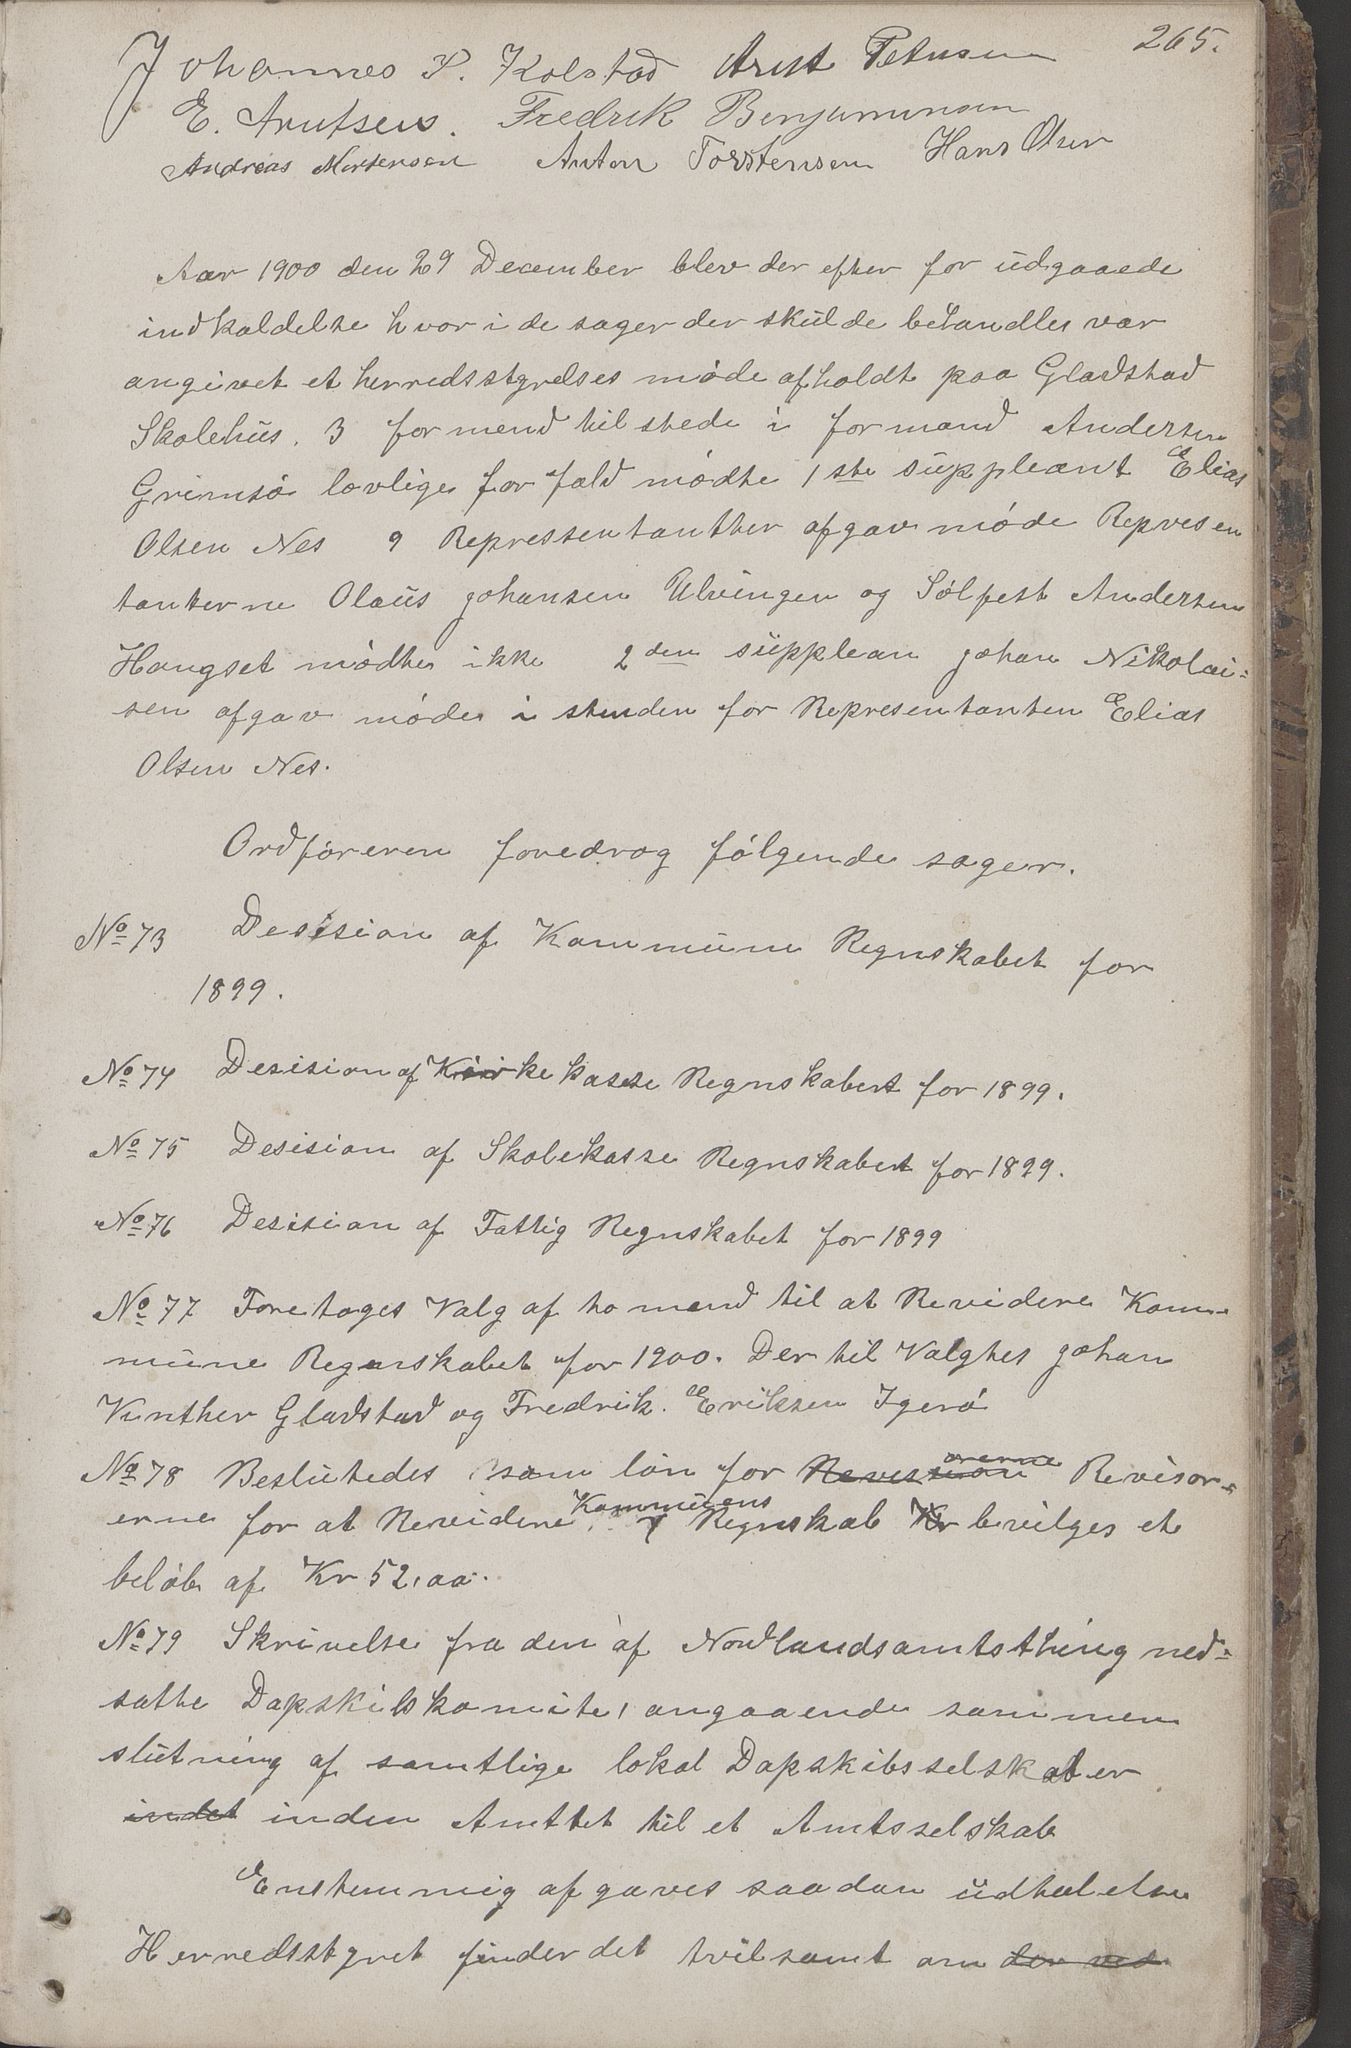 265.
Johannes P. Kolstad Arnt Petersen
E. Arntsen. Fredrik Benjaminsen
Andreas Mortensen Anton Torstensen Hans Olsen
Aar 1900 den 29 December blev der efter for udgaaede
indkaldelse hvor i de sager der skulde behandles var
angivet et herredsstyrelses møde afholdt paa Gladstad
Skolehus. 3 formend tilstede i formand Andersen
Grimsø lovlige forfald mødte 1ste suppleant Elias
Olsen Nes 9 Repressentanther afgav møde Represen
tanterne Olaus Johansen Ulvingen og Sølfest Andersen
Hongset mødte ikke 2den supplean Johan Nikolai=
sen afgav møde i steden for Representanten Elias
Olsen Nes.
Ordføreren foredrog følgende sager.
No 73 Desision af Kommune Regnskabet for
1899.
No 74 Desision af Kirkekasse Regnskabet for 1899.
No 75 Desision af Skolekasse Regnskabet for 1899.
No 76 Desision af Fattig Regnskabet for 1899
No 77 Foretoges Valg af to mend til at Revidere Kom-
mune Regnskabet for 1900. Der til Valgtes Johan
Vinther Gladstad og Fredrik. Eriksen Igerø
No 78 Beslutedes som løn for Revissionen orerne Revisor-
erne for at Revidere Kommunens Regnskab Kr bevilges et
beløb af Kr 52,00.
No 79 Skrivelse fra den af Nordlandsamtsthing ned=
satte Dapskibskomite, angaaende sammen
slutning af samtlige lokal Dapskibsselskaber
indet inden Amttet til et Amtsselskab
Enstemmig afgaves saadan udtalelse
Herredsstyret finder det tvilsamt om der ved